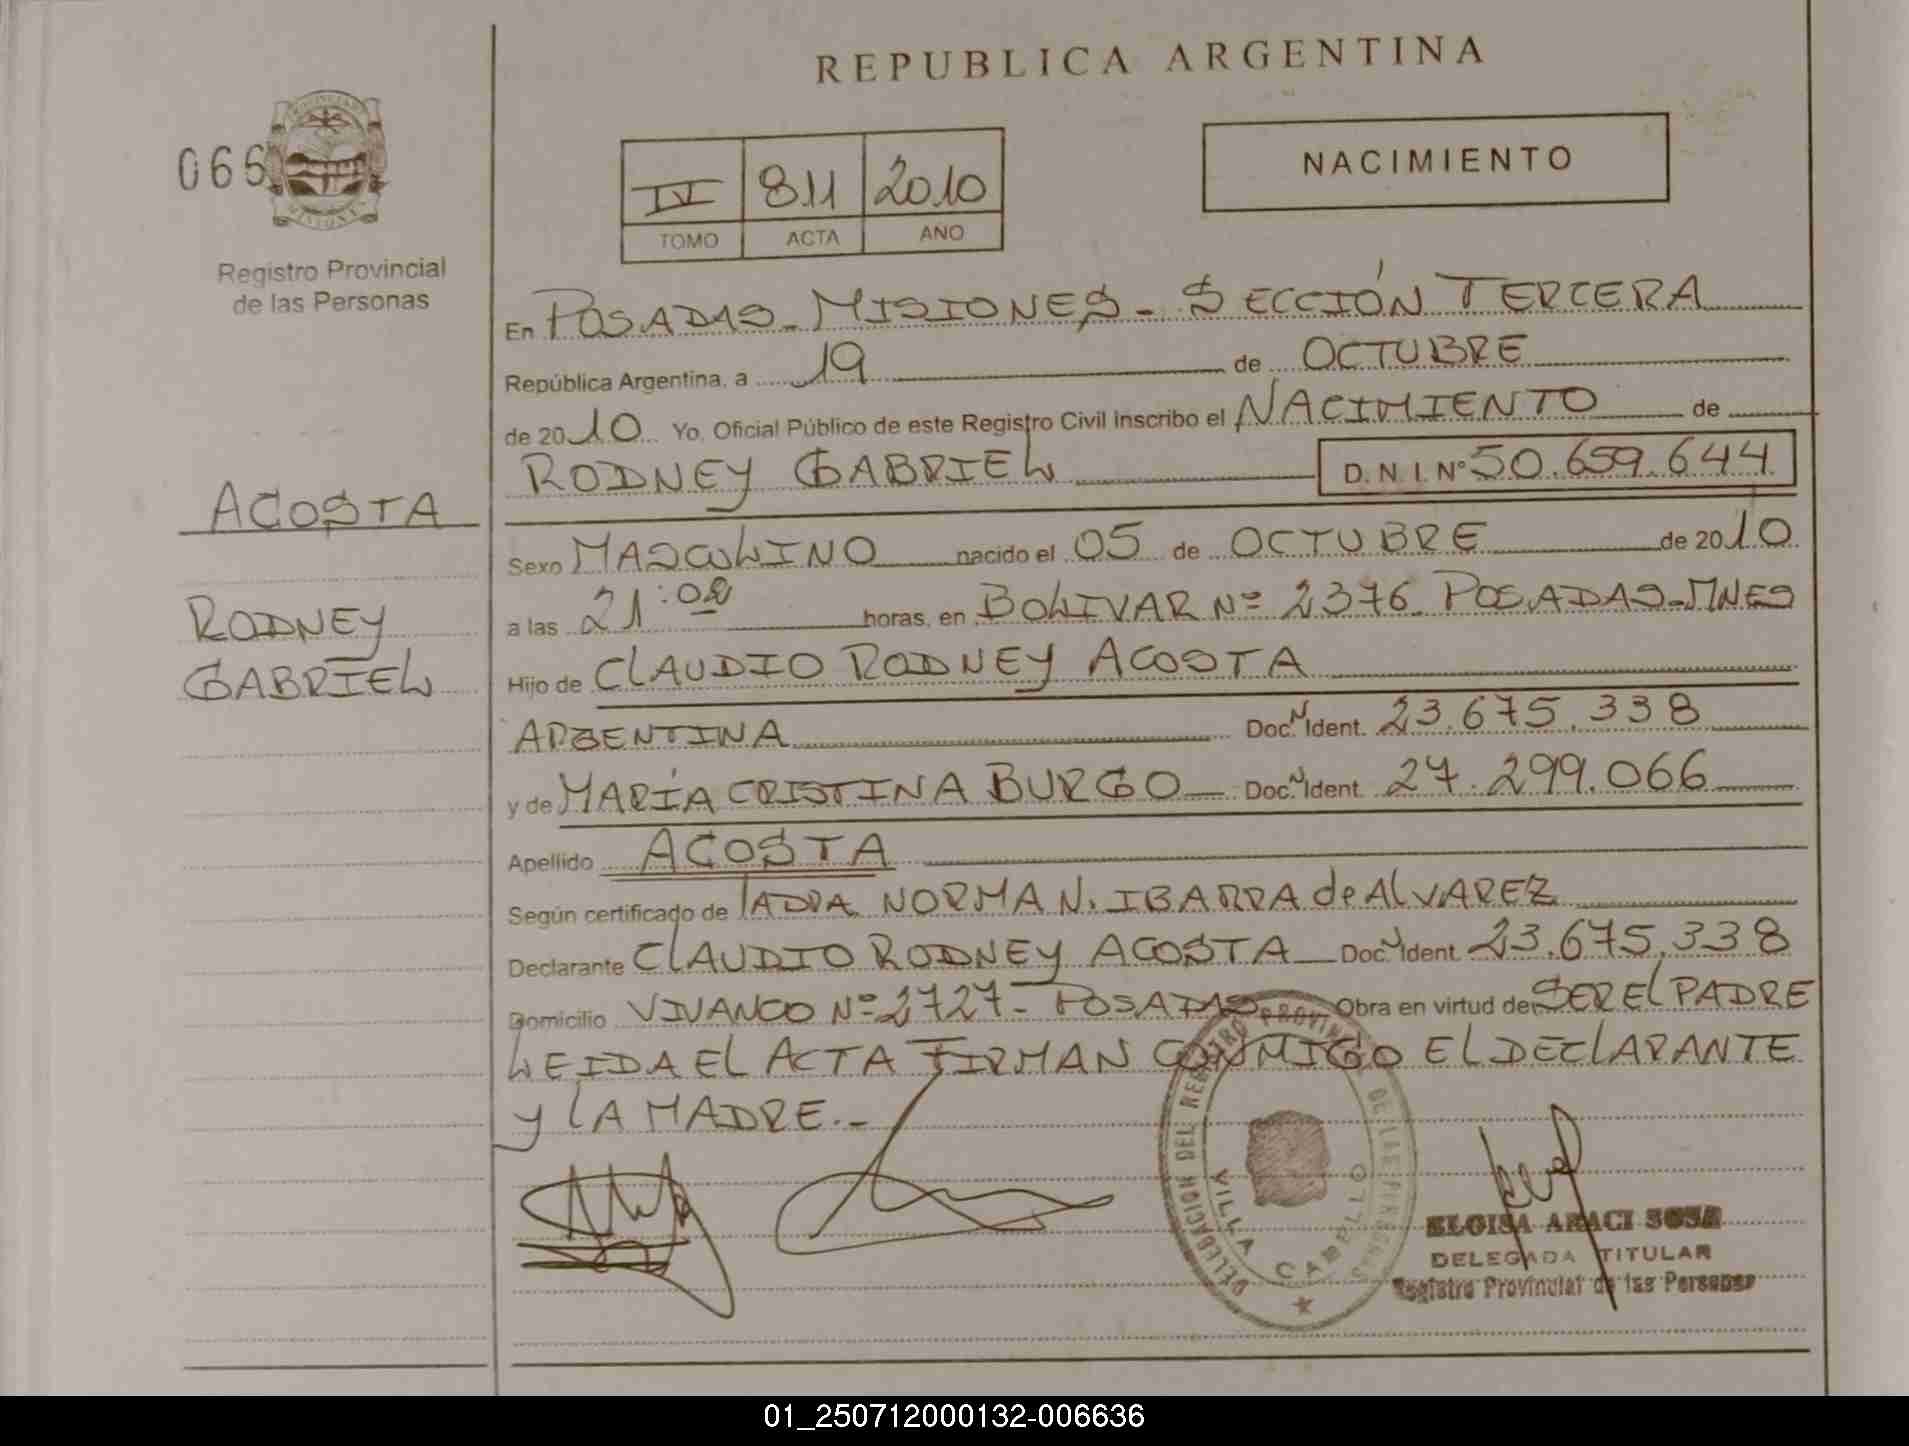 REPUBLICA ARGENTINA
066
NACIMIENTO
IV 811 2010
TOMO ACTA AÑO
Registro Provincial
de las Personas
En POSADAS - MISIONES - SECCIÓN TERCERA
República Argentina, a 19 de OCTUBRE
de 2010 Yo, Oficial Público de este Registro Civil Inscribo el NACIMIENTO de
RODNEY GABRIEL D. N. I. N° 50.659.644
ACOSTA
Sexo MASCULINO nacido el 05 de OCTUBRE de 2010
RODNEY
GABRIEL
a las 21:02 horas, en BOLIVAR Nº 2376 POSADAS-MNES
Hijo de CLAUDIO RODNEY ACOSTA
ARGENTINA Doc. N Ident. 23.675.338
y de MARÍA CRISTINA BURGO Doc. N Ident. 27.299.066
Apellido ACOSTA
Según certificado de NORMA N. IBARRA de ALVAREZ
Declarante CLAUDIO RODNEY ACOSTA Doc. N Ident. 23.675.338
Domicilio VIVANCO Nº 2727 - POSADAS Obra en virtud de SER EL PADRE
LEIDA EL ACTA FIRMAN CONMIGO EL DECLARANTE
Y LA MADRE.-
DELEGACION DEL REGISTRO PROVINCIAL DE LAS PERSONAS
VILLA CABELLO
ELOISA ARACI SOSA
DELEGADA TITULAR
Registro Provincial de las Personas
01_250712000132-006636